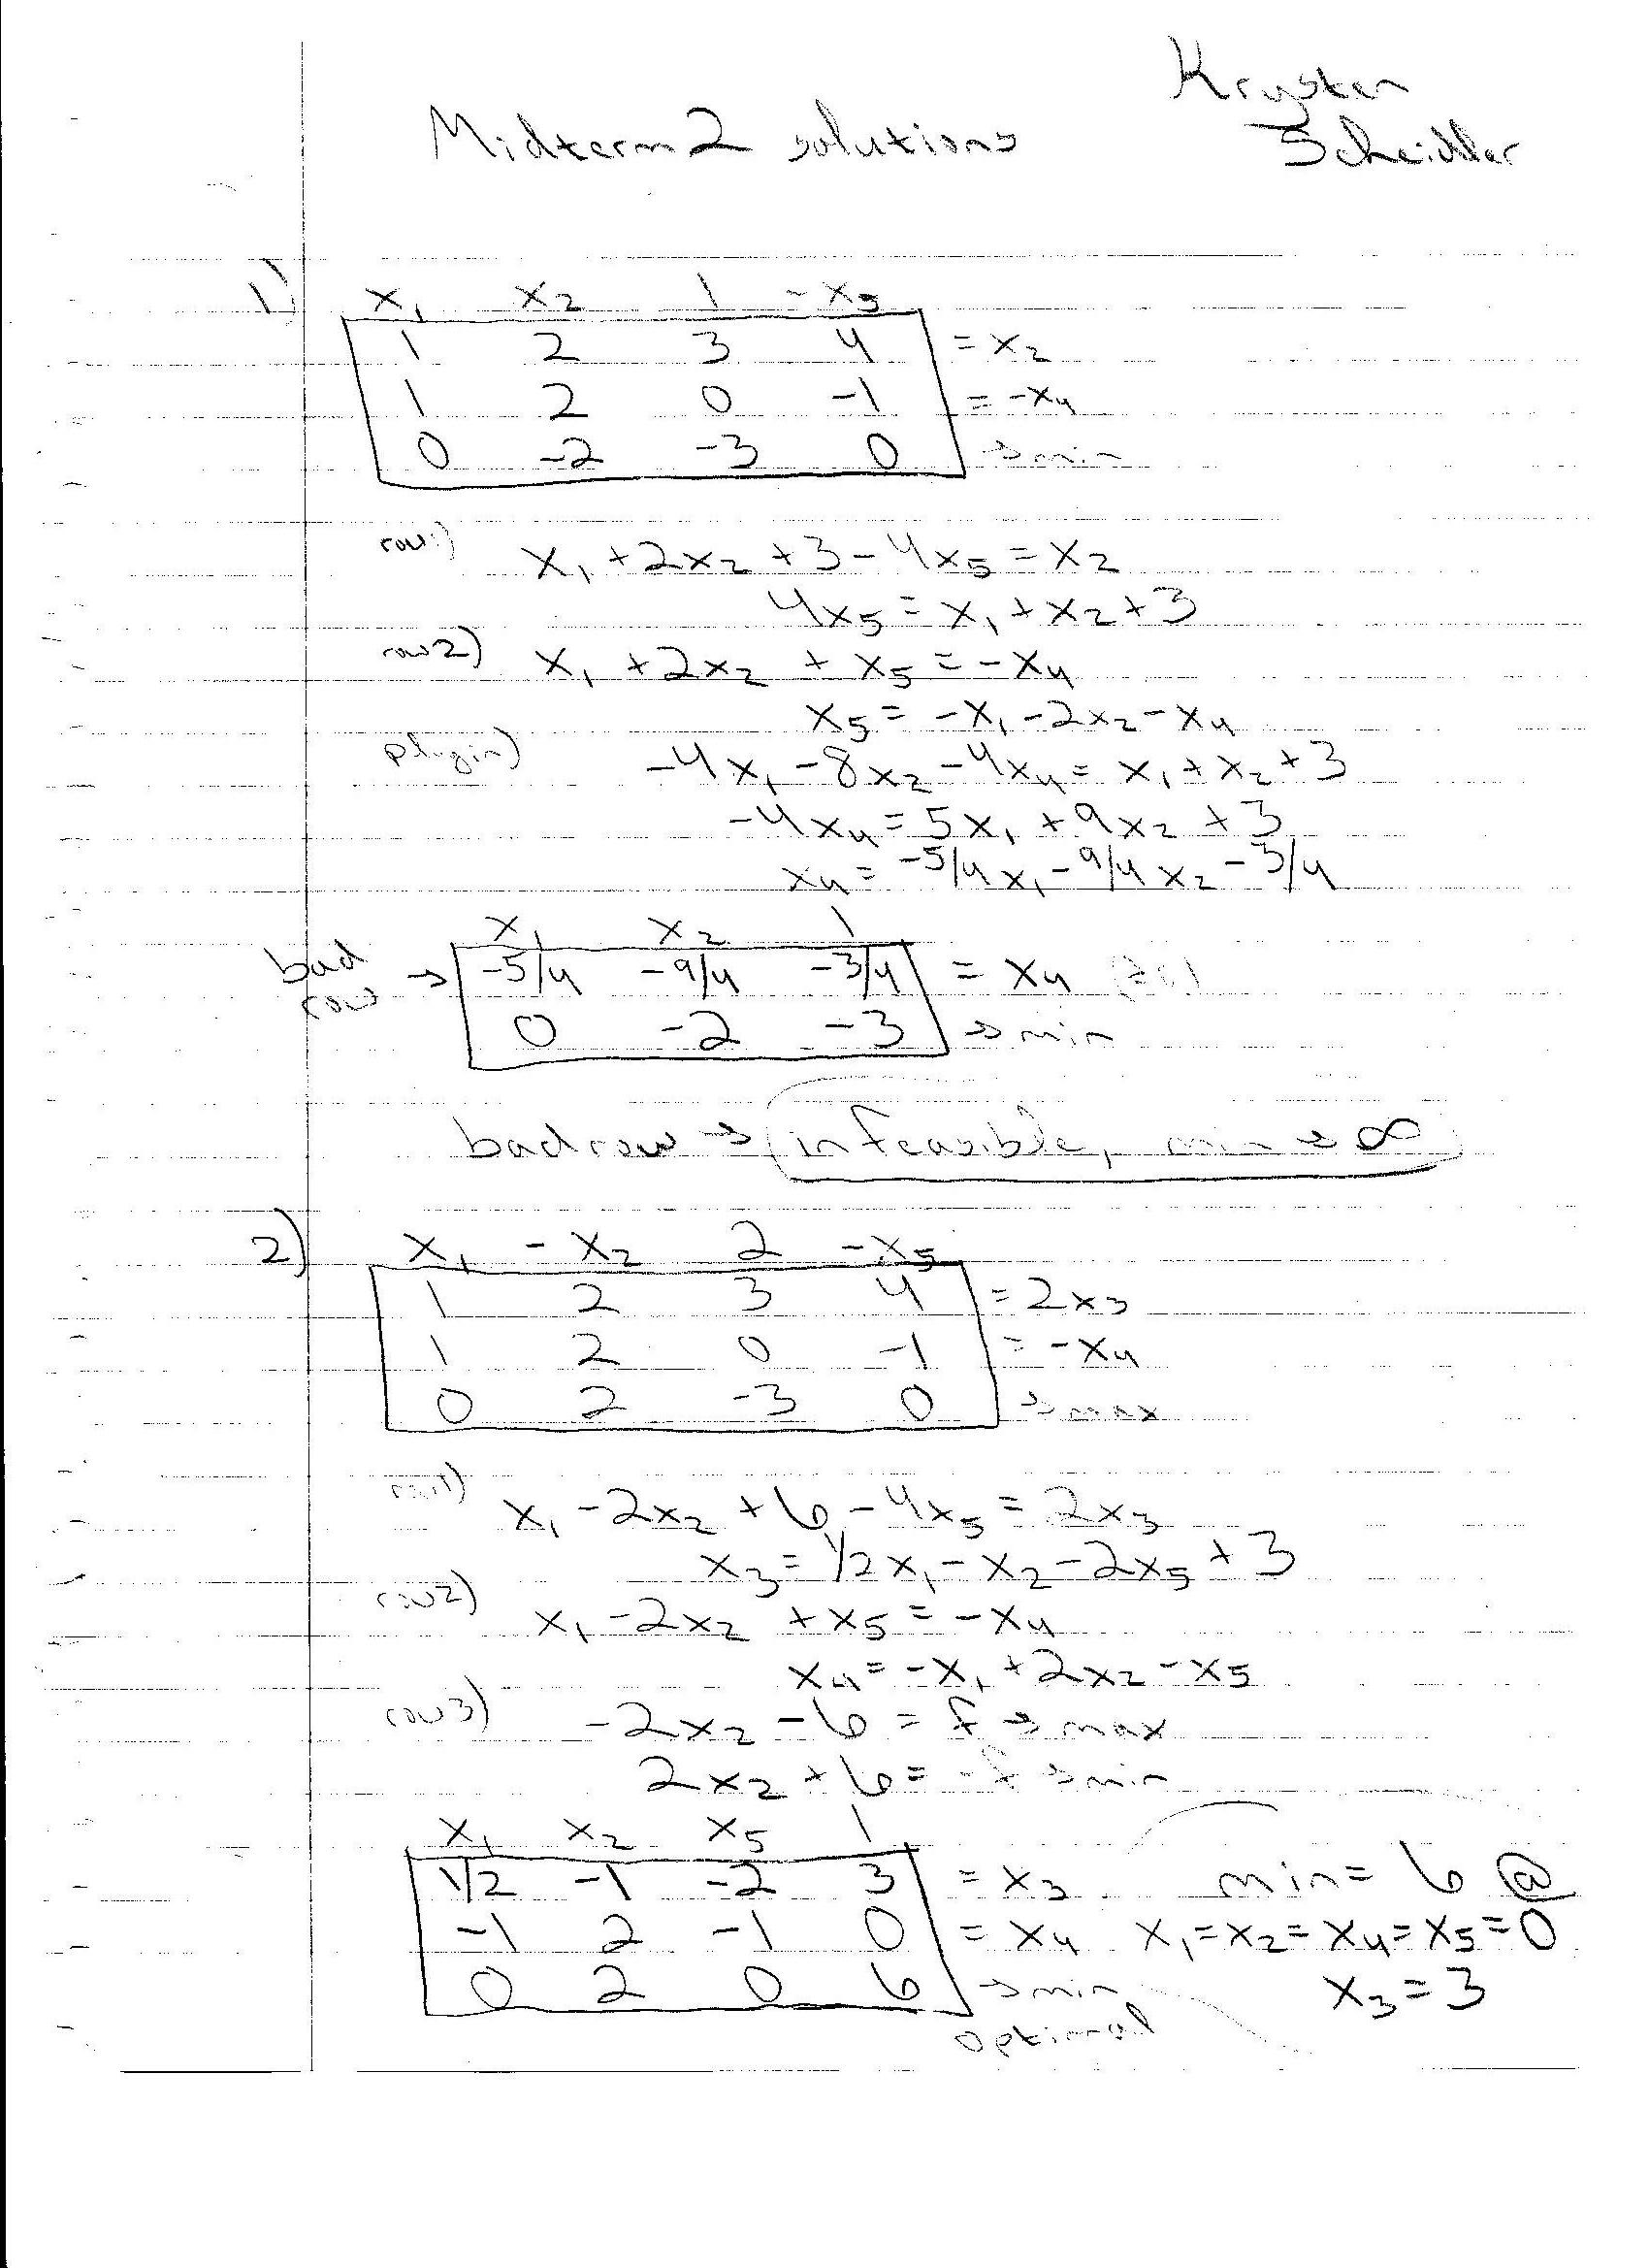 Krysten
Midterm 2 solutions Scheidler
1) x₁ x₂ 1 -x₅
1 2 3 4 = x₂
1 2 0 -1 = -x₄
0 -2 -3 0 → min
row1) x₁ + 2x₂ + 3 - 4x₅ = x₂
4x₅ = x₁ + x₂ + 3
row2) x₁ + 2x₂ + x₅ = -x₄
x₅ = -x₁ - 2x₂ - x₄
plugin) -4x₁ - 8x₂ - 4x₄ = x₁ + x₂ + 3
-4x₄ = 5x₁ + 9x₂ + 3
x₄ = -5/4 x₁ - 9/4 x₂ - 3/4
x₁ x₂ 1
bad row → -5/4 -9/4 -3/4 = x₄ (≥0)
0 -2 -3 → min
bad row → infeasible, min → ∞
2) x₁ -x₂ 2 -x₅
1 2 3 4 = 2x₃
1 2 0 -1 = -x₄
0 2 -3 0 → max
row1) x₁ - 2x₂ + 6 - 4x₅ = 2x₃
x₃ = 1/2x₁ - x₂ - 2x₅ + 3
row2) x₁ - 2x₂ + x₅ = -x₄
x₄ = -x₁ + 2x₂ - x₅
row3) -2x₂ - 6 = f → max
2x₂ + 6 = -f → min
x₁ x₂ x₅ 1
1/2 -1 -2 3 = x₃ min = 6 @
-1 2 -1 0 = x₄ x₁ = x₂ = x₄ = x₅ = 0
0 2 0 6 → min x₃ = 3
optimal